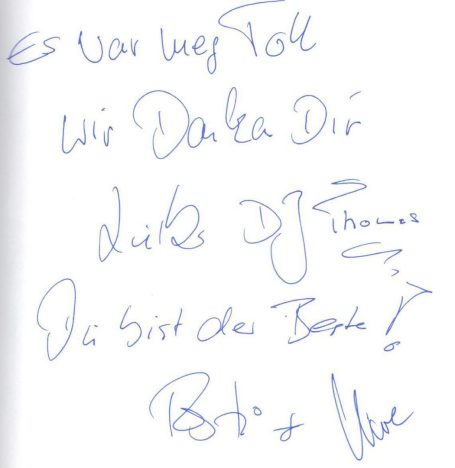 Es war meg Toll
Wir Danka Dir
DJ Thomas
Du bist der Beste!
+ Uwe